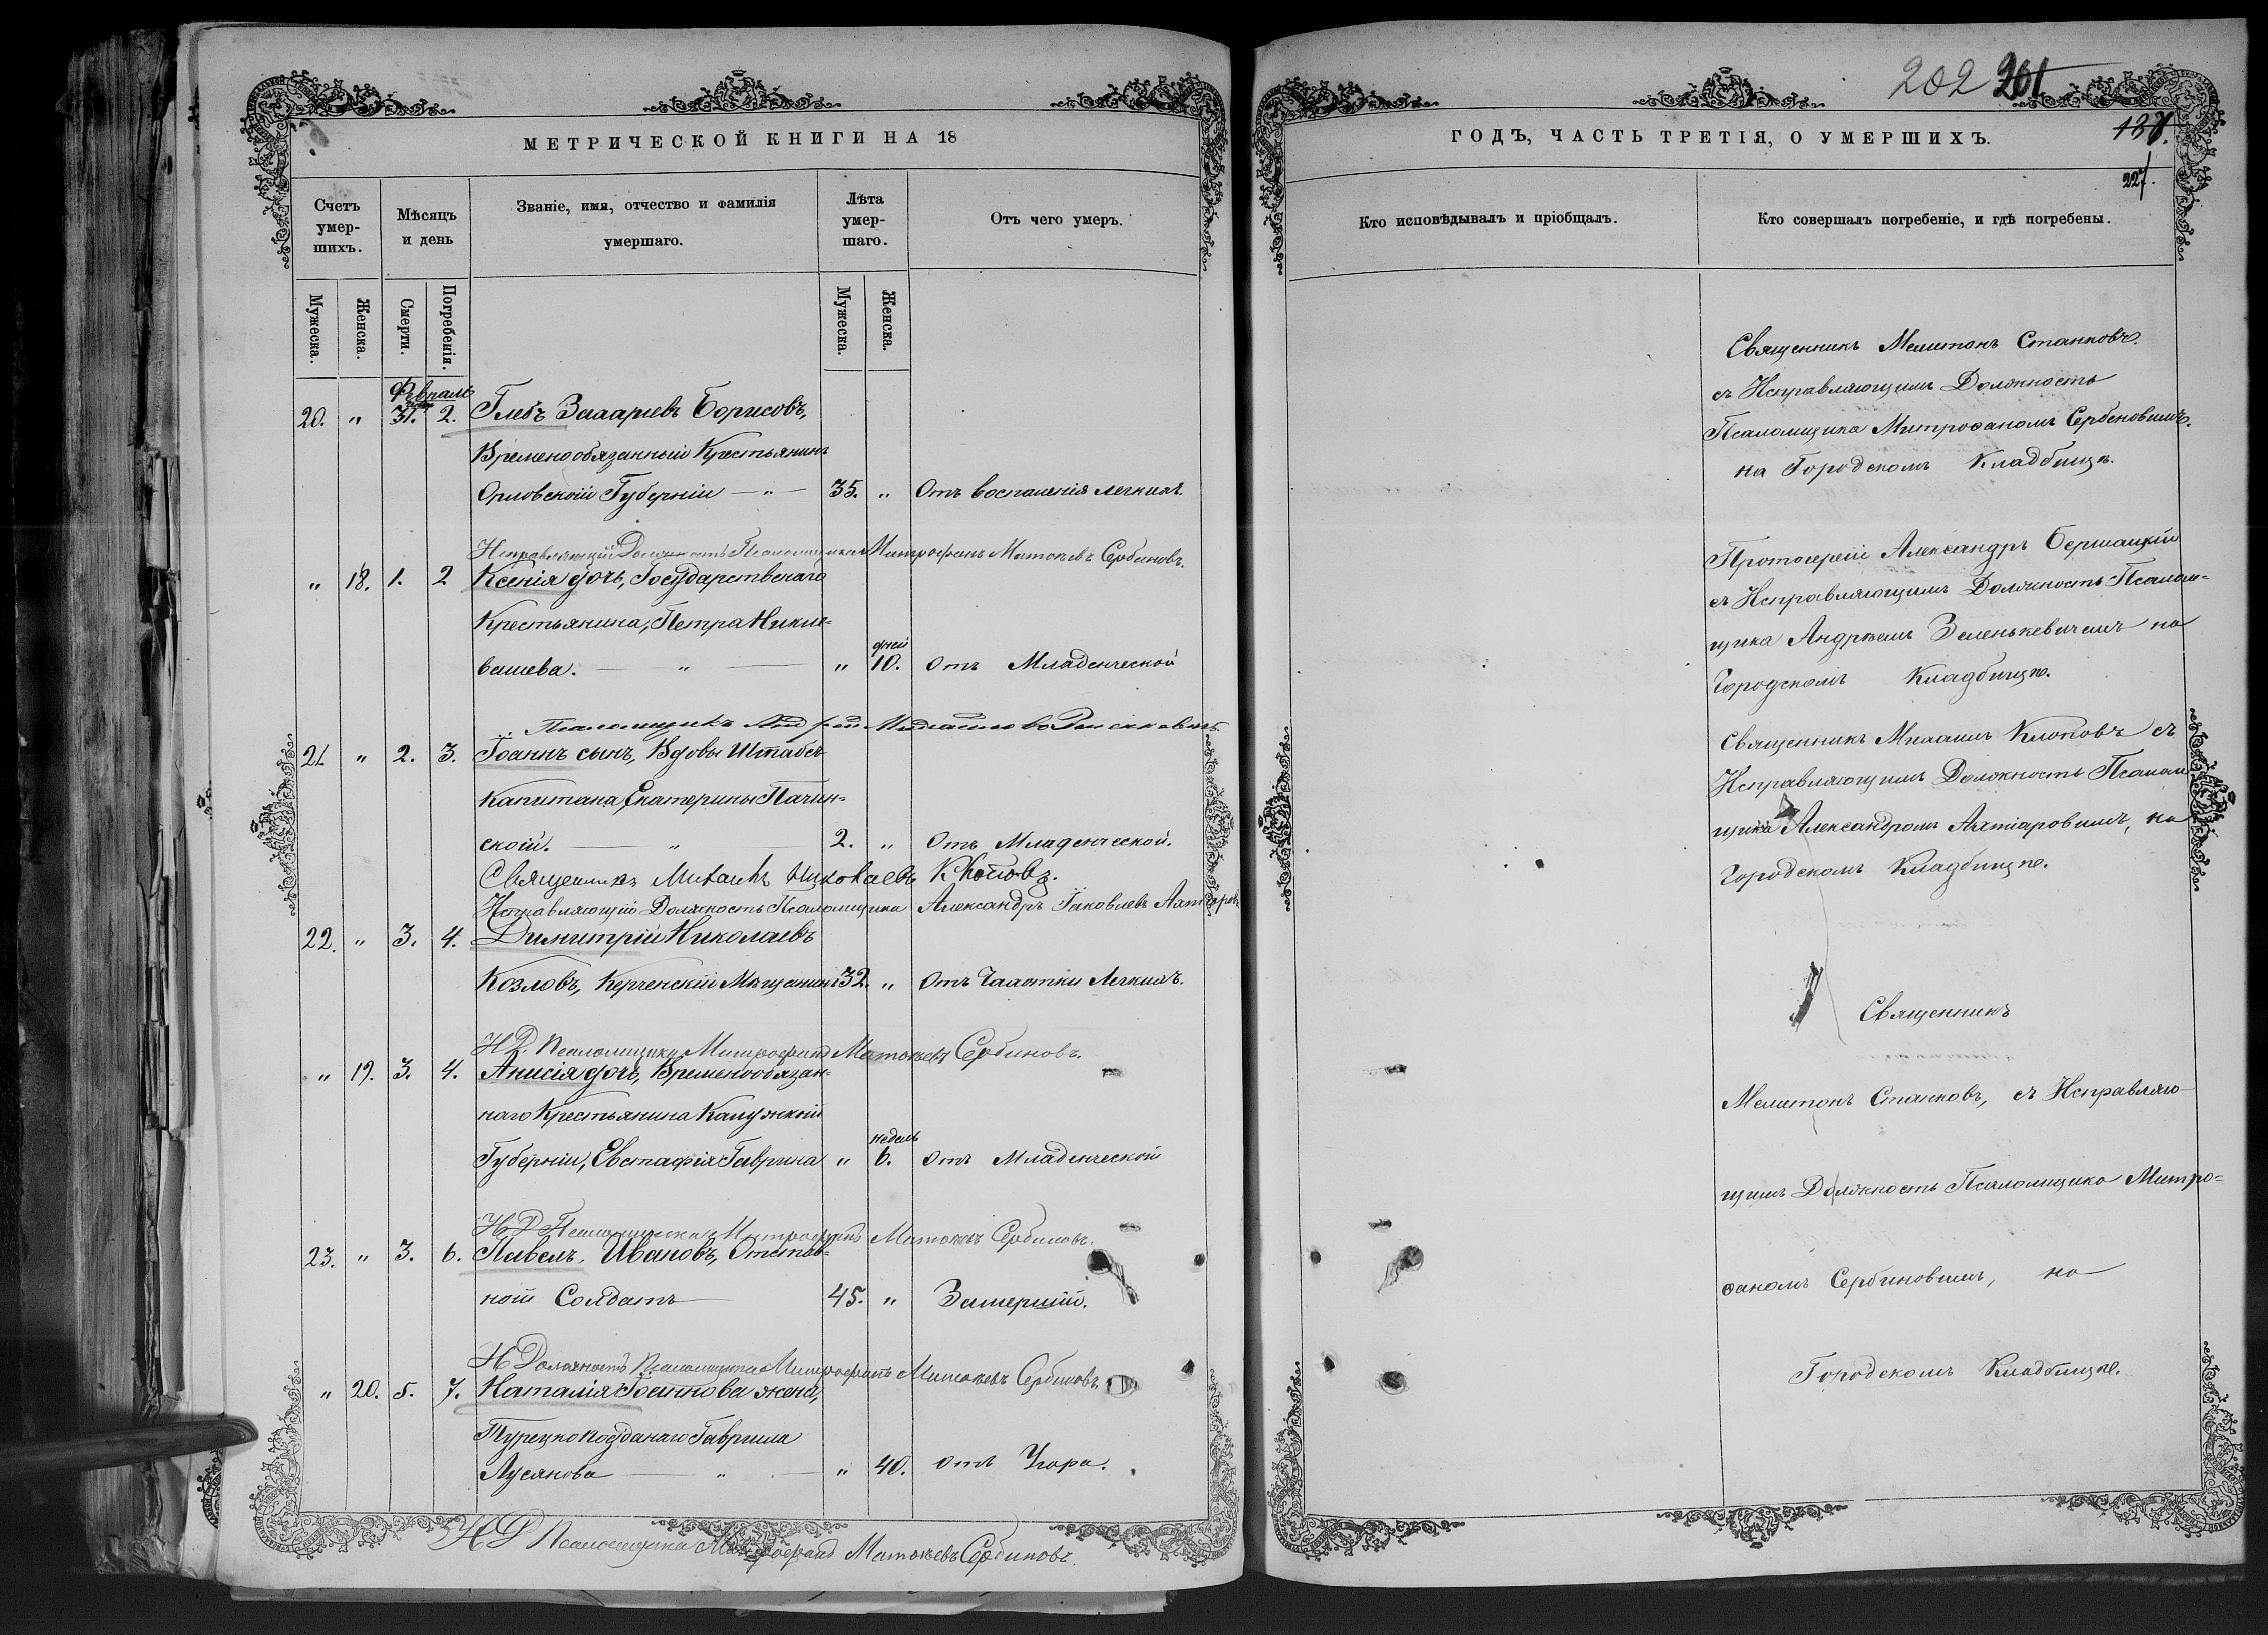 МЕТРИЧЕСКОЙ КНИГИ НА 18
Счетъ умер-
шихъ.
Мѣсяцъ
и день
Званіе, имя, отчество и фамилія
умершаго.
Лѣта
умер-
шаго.
Отъ чего умеръ.
Мужеска.
Женска.
Смерти.
Погребенія.
Мужеска.
Женска.
Февраль
20. " 31. 2. Глебъ Захаріевъ Борисовъ,
Временообязанный Крестьянинъ
Орловской Губерніи — " — 35. " Отъ воспаленія легкихъ.
Исправляющій Должность Псаломщика Митрофанъ Матвѣевъ Сербиновъ.
" 18. 1. 2 Ксенія дочь, Государственаго
Крестьянина, Петра Никие-
дней
вашева. — " — " 10. отъ Младенческой
Псаломщикъ
21. " 2. 3. Іоаннъ сынъ, Вдовы Штабсъ
Капитана, Екатерины Пачин-
ской. — " — 2. " Отъ Младенческой.
Священникъ Михаилъ Николаевъ Клоповъ.
Исправляющій Должность Псаломщика Александръ Іаковлевъ Ахтіаровъ
22. " 3. 4. Димитрій Николаевъ
Козловъ, Керченскій Мѣщанинъ 32. " Отъ Чахотки Легкихъ.
И.Д. Псаломщика Митрофанъ Матвѣевъ Сербиновъ.
" 19. 3. 4. Анисія дочь, Временообязан-
наго Крестьянина Калужской
недель
Губерніи, Евстафія Гаврина " 6. отъ Младенческой
И.Д. Псаломщика Митрофанъ Матвѣевъ Сербиновъ.
23. " 3. 6. Павелъ Ивановъ, Отстав-
ной Солдатъ — 45. " Замерший.
И Должность Псаломщика Митрофанъ Матвѣевъ Сербиновъ.
" 20. 5. 7. Наталія Іоаннова жена,
Турецкоподданаго Гавриила
Лусянова — " — " 40. отъ Удара.
И Д Псаломщика Митрофанъ Матвѣевъ Сербиновъ
202 201
ГОДЪ, ЧАСТЬ ТРЕТІЯ, О УМЕРШИХЪ.
187.
227.
Кто исповѣдывалъ и пріобщалъ.
Кто совершалъ погребеніе, и гдѣ погребены.
Священникъ Мелитонъ Станковъ.
съ Исправляющимъ Должность
Псаломщика Митрофаномъ Сербиновымъ.
на Городскомъ Кладбищѣ.
Протоіерей Александръ Бершацкій
съ Исправляющимъ Должность Псалом-
щика Андреемъ Зеленькевичемъ на
Городскомъ Кладбищѣ.
Священникъ Михаилъ Клоповъ съ
Исправляющимъ Должность Псалом
щика Александромъ Ахтіаровымъ, на
Городскомъ Кладбищѣ.
Священникъ
Мелитонъ Станковъ, съ Исправляю-
щимъ Должность Псаломщика Митро-
фаномъ Сербиновымъ, на
Городскомъ Кладбищѣ.